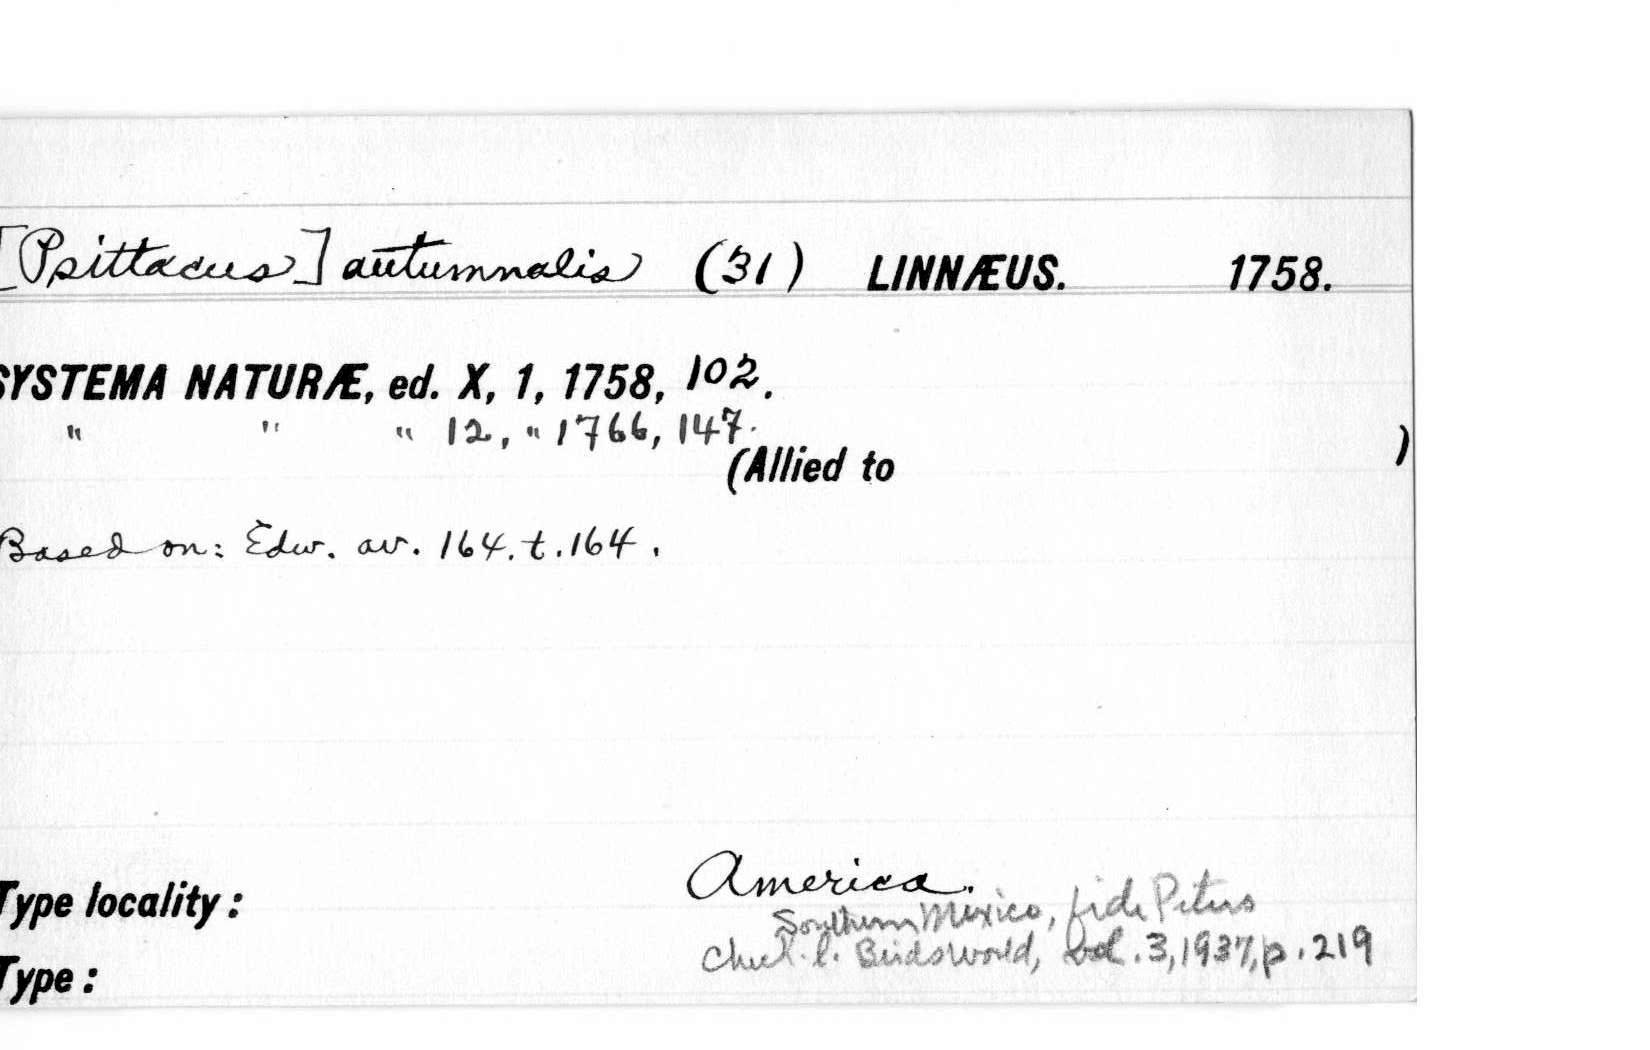 [Psittacus] autumnalis (31) LINNÆUS. 1758.
SYSTEMA NATURÆ, ed. X, 1, 1758, 102.
" " " 12, " 1766, 147.
(Allied to )
Based on: Edw. av. 164. t. 164.
Type locality: America.
Southern Mexico, fide Peters
Check. l. Birds World, vol. 3, 1937, p. 219
Type: